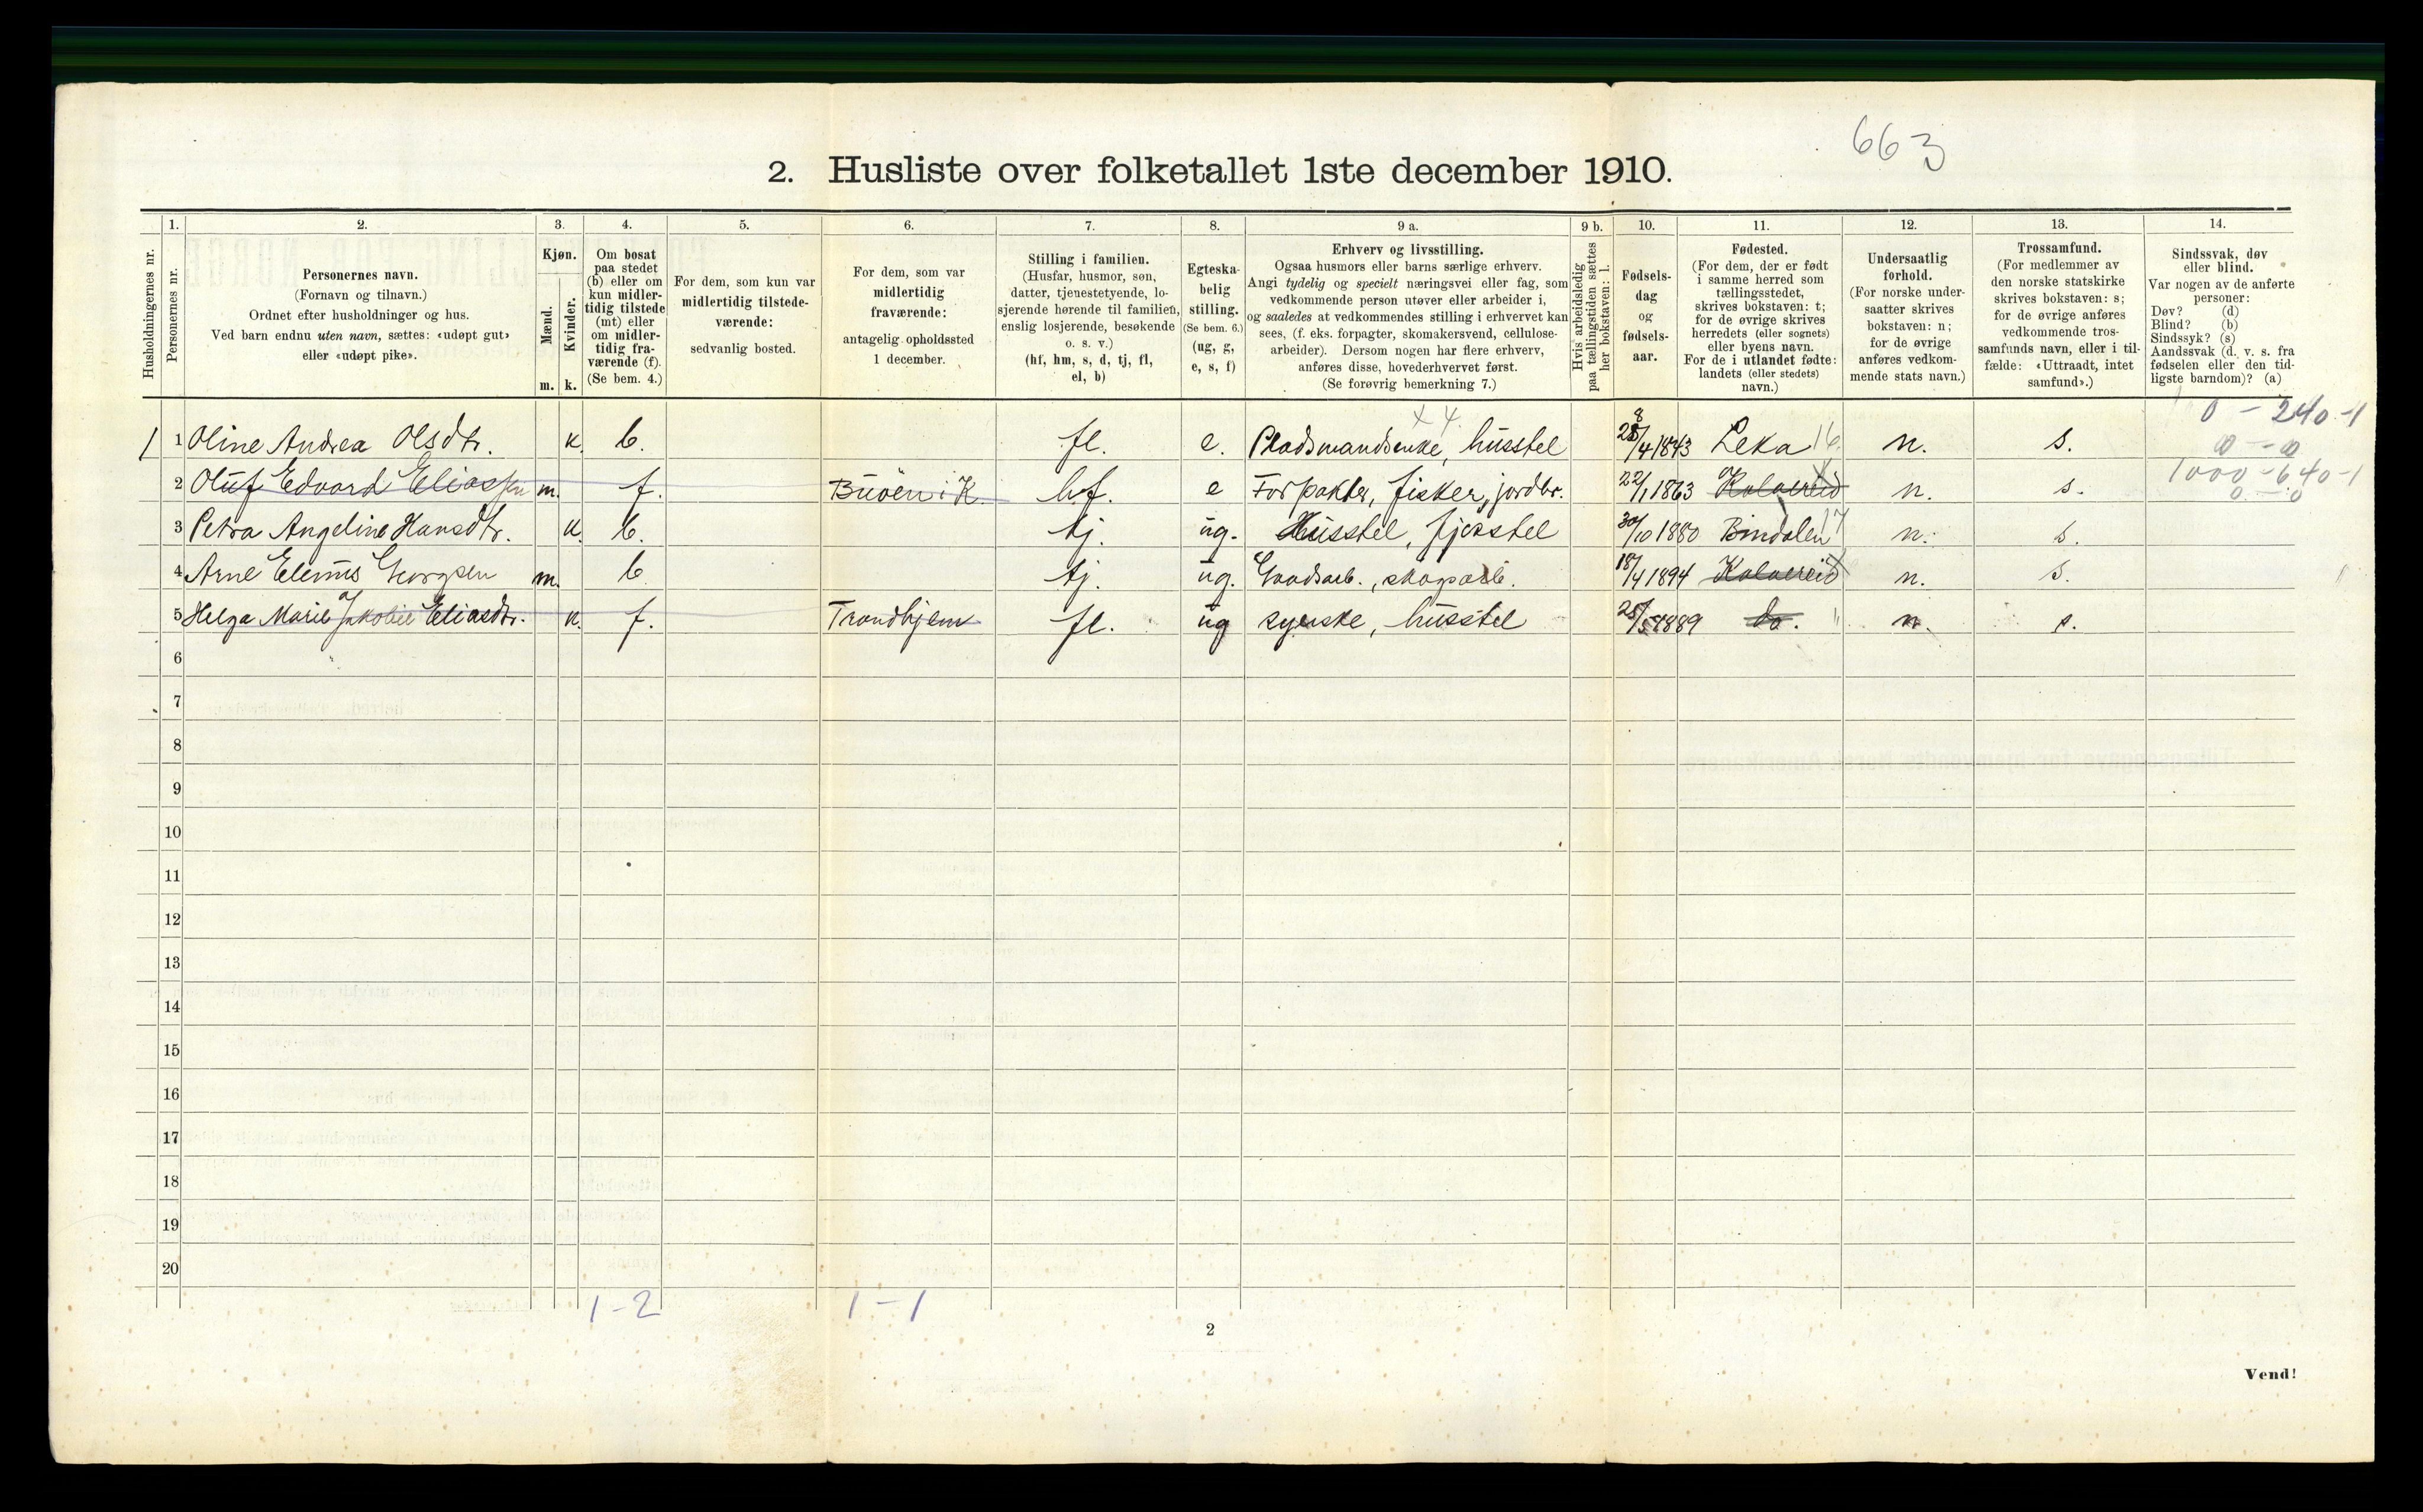 663
2. Husliste over folketallet 1ste december 1910.
Husholdningernes nr.
1. Personernes nr.
2. Personernes navn. (Fornavn og tilnavn.) Ordnet efter husholdninger og hus. Ved barn endnu uten navn, sættes: «udøpt gut» eller «udøpt pike».
3. Kjøn. Mænd. m. Kvinder. k.
4. Om bosat paa stedet (b) eller om kun midlertidig tilstede (mt) eller om midlertidig fraværende (f). (Se bem. 4.)
5. For dem, som kun var midlertidig tilstedeværende: sedvanlig bosted.
6. For dem, som var midlertidig fraværende: antagelig opholdssted 1 december.
7. Stilling i familien. (Husfar, husmor, søn, datter, tjenestetyende, losjerende hørende til familien, enslig losjerende, besøkende o. s. v.) (hf, hm, s, d, tj, fl, el, b)
8. Egteskabelig stilling. (Se bem. 6.) (ug, g, e, s, f)
9 a. Erhverv og livsstilling. Ogsaa husmors eller barns særlige erhverv. Angi tydelig og specielt næringsvei eller fag, som vedkommende person utøver eller arbeider i, og saaledes at vedkommendes stilling i erhvervet kan sees, (f. eks. forpagter, skomakersvend, cellulosearbeider). Dersom nogen har flere erhverv, anføres disse, hovederhvervet først. (Se forøvrig bemerkning 7.)
9 b. Hvis arbeidsledig paa tællingstiden sættes her bokstaven: l.
10. Fødselsdag og fødselsaar.
11. Fødested. (For dem, der er født i samme herred som tællingsstedet, skrives bokstaven: t; for de øvrige skrives herredets (eller sognets) eller byens navn. For de i utlandet fødte: landets (eller stedets) navn.)
12. Undersaatlig forhold. (For norske undersaatter skrives bokstaven: n; for de øvrige anføres vedkommende stats navn.)
13. Trossamfund. (For medlemmer av den norske statskirke skrives bokstaven: s; for de øvrige anføres vedkommende trossamfunds navn, eller i tilfælde: «Uttraadt, intet samfund».)
14. Sindssvak, døv eller blind. Var nogen av de anførte personer: Døv? (d) Blind? (b) Sindssyk? (s) Aandssvak (d. v. s. fra fødselen eller den tidligste barndom)? (a)
x 4 0 - 240-1
1 1 Oline Andrea Olsdtr. k. b. fl. e. Pladsmandsenke, husstel 28/4 1843 Leka 16 n. s. 0 - 0
2 Oluf Edvard Eliassen m. f. Buöen i K. hf. e Forpakter, fisker, jordbr. 22/1 1863 Kolvereid n. s. 1000-640-1
0 - 0
3 Petra Angeline Hansdtr. k. b. tj. ug. Husstel, fjøsstel 30/10 1880 Bindalen 17 n. s.
4 Arne Elenus Georgsen m. b tj. ug. Gaardsarb., skogsarb. 18/4 1894 Kolvereid n. s.
5 Helga Marie Jakobie Eliasdtr. k. f. Trondhjem fl. ug syerske, husstel 1889 do. n. s.
6
7
8
9
10
11
12
13
14
15
16
17
18
19
20
1-2 1-1
2
Vend!